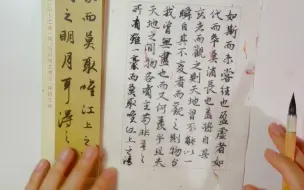 如斯而未嘗往也盈虛者如
代而卒莫消長也蓋將自其
變者而觀之則天地曾不能以一
瞬自其不變者而觀之則物與
我皆無盡也而又何羨乎且夫
天地之間物各有主苟非吾之
所有雖一毫而莫取唯江上之清
而莫取唯江上之
之明月耳得之